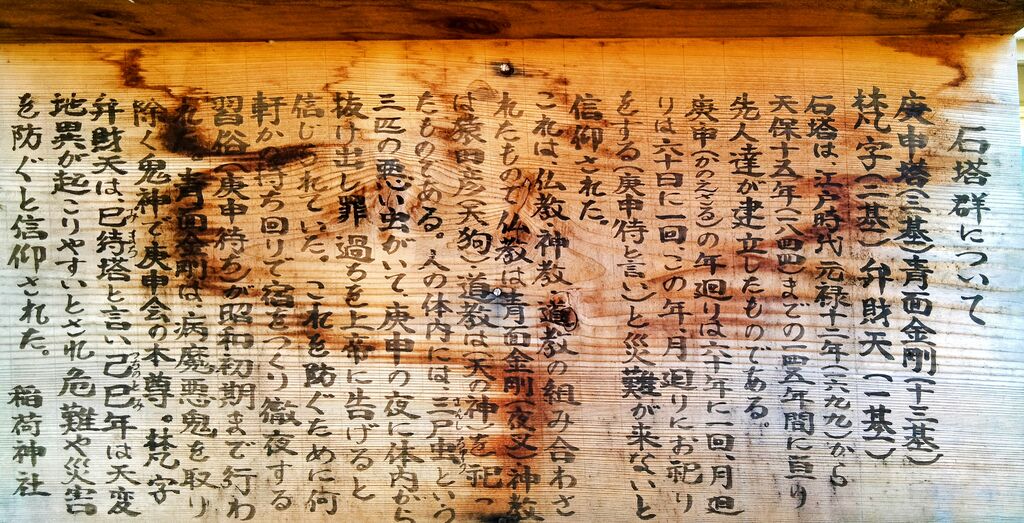 石塔群について
庚申塔(三基)青面金剛(十三基)
梵字(二基)弁財天(一基)
石塔は、江戸時代(元禄十二年(一六九九)から
天保十五年(一八四四)までの一四五年間に亘り
先人達が建立したものである。
庚申(かのえさる)の年廻りは六十年に一回、月廻
りは六十日に一回、この年、月廻りにお祀り
をする(庚申待と言い)と災難が来ないと
信仰された。
これは、仏教、神教、道教の組み合わさ
れたもので仏教は青面金剛(夜叉)神教
は猿田彦(天狗)道教は(天の神)を祀っ
たものである。人の体内には、三尸虫という
三匹の悪い虫がいて庚申の夜に体内から
抜け出し罪過ちを上帝に告げると
信じられていた。これを防ぐために何
軒かの待ち回りで宿をつくり徹夜する
習俗(庚申待ち)が昭和初期まで行わ
れた。青面金剛は、病魔悪鬼を取り
除く鬼神で庚申会の本尊。梵字
弁財天は、巳待塔と言い己巳年は天変
地異が起こりやすいとされ危難や災害
を防ぐと信仰された。
稲荷神社